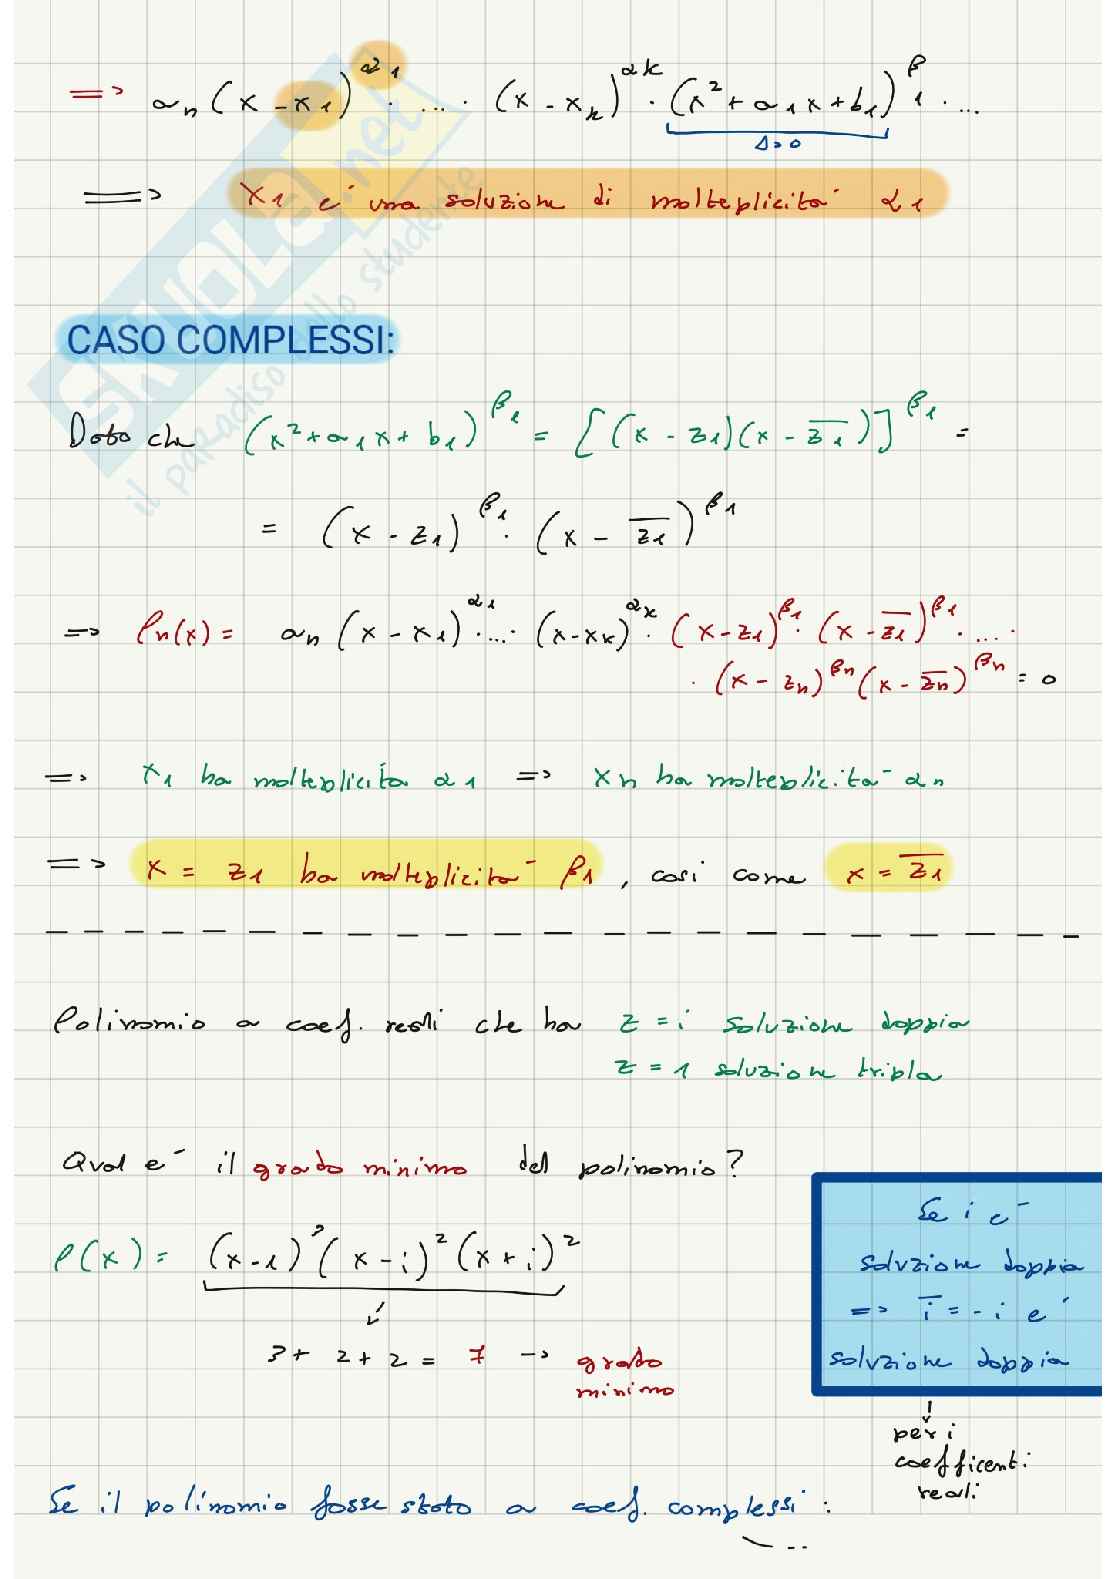 => aₙ (x - x₁)^α₁ · .... · (x - xₖ)^αₖ · (x² + a₁x + b₁)^β₁ · ...
Δ>0
=> X₁ e' una soluzione di molteplicita' α₁
CASO COMPLESSI:
Dato che (x² + a₁x + b₁)^β₁ = [(x - z₁)(x - z̅₁)]^β₁ =
= (x - z₁)^β₁ · (x - z̅₁)^β₁
=> Pₙ(x) = aₙ (x - x₁)^α₁ · ... · (x - xₖ)^αₖ · (x - z₁)^β₁ · (x - z̅₁)^β₁ · .... ·
· (x - zₙ)^βₙ (x - z̅ₙ)^βₙ = 0
=> x₁ ha molteplicita α₁ => xₙ ha molteplicita' αₙ
=> x = z₁ ha molteplicita' β₁ , cosi come x = z̅₁
Polinomio a coef. reali che ha z = i soluzione doppia
z = 1 soluzione tripla
Qual e' il grado minimo del polinomio?
P(x) = (x - 1)³ (x - i)² (x + i)²
3 + 2 + 2 = 7 -> grado
minimo
Se i e'
soluzione doppia
=> i̅ = - i e'
soluzione doppia
per i
coefficenti
reali
Se il polinomio fosse stato a coef. complessi :
...
SKUOLA.net
il paradiso dello studente